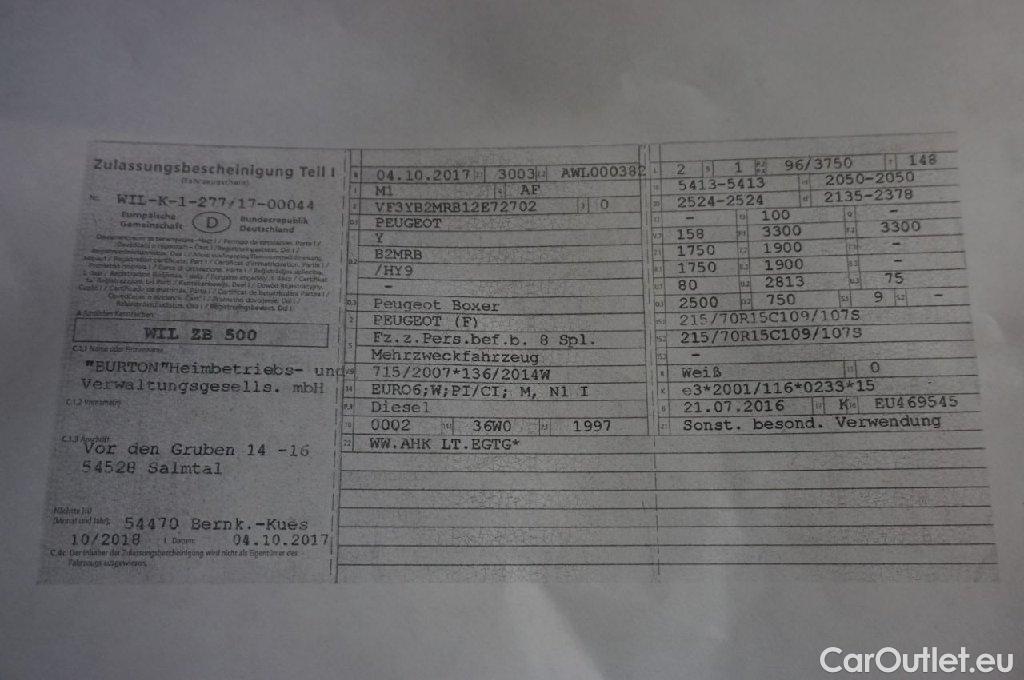 Zulassungsbescheinigung Teil I
(Fahrzeugschein)
Nr. WIL-K-1-277/17-00044
Europäische Gemeinschaft D Bundesrepublik Deutschland
WIL ZB 500
C.1.1 Name oder Firmenname
"BURTON"Heimbetriebs- und
Verwaltungsgesells. mbH
C.1.2 Vorname(n)
C.1.3 Anschrift
Vor den Gruben 14 -16
54528 Salmtal
Nächste HU
(Monat und Jahr)
54470 Bernk.-Kues
10/2018 I Datum: 04.10.2017
C.4c Der Inhaber der Zulassungsbescheinigung wird nicht als Eigentümer des
Fahrzeugs ausgewiesen.
B 04.10.2017 3003 AWL000382
J M1 4 AF
E VF3YB2MRB12E72702 3 0
D.1 PEUGEOT
Y
D.2 B2MRB
/HY9
-
D.3 Peugeot Boxer
2 PEUGEOT (F)
5 Fz.z.Pers.bef.b. 8 Spl.
Mehrzweckfahrzeug
V.9 715/2007*136/2014W
14 EURO6;W;PI/CI; M, N1 I
P.3 Diesel
10 0002 14.1 36W0 P.1 1997
22 WW.AHK LT.EGTG*
L 2 9 1 P.2 P.4 96/3750 T 148
18 5413-5413 19 2050-2050
20 2524-2524 G 2135-2378
- 13 100 Q -
V.7 158 F.1 3300 F.2 3300
7.1 1750 7.2 1900 7.3 -
8.1 1750 8.2 1900 8.3 -
U.1 80 U.2 2813 U.3 75
O.1 2500 O.2 750 S.1 9 S.2 -
15.1 215/70R15C109/107S
15.2 215/70R15C109/107S
15.3 -
R Weiß 11 0
K e3*2001/116*0233*15
6 21.07.2016 17 K 16 EU469545
21 Sonst. besond. Verwendung
CarOutlet.eu